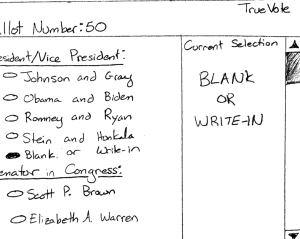 TrueVote
llot Number:50
esident/Vice President:
Johnson and Gray
Obama and Biden
Romney and Ryan
Stein and Honkala
Blank or Write-in
enator in Congress:
Scott P. Brown
Elizabeth A. Warren
Current Selection
BLANK
OR
WRITE-IN